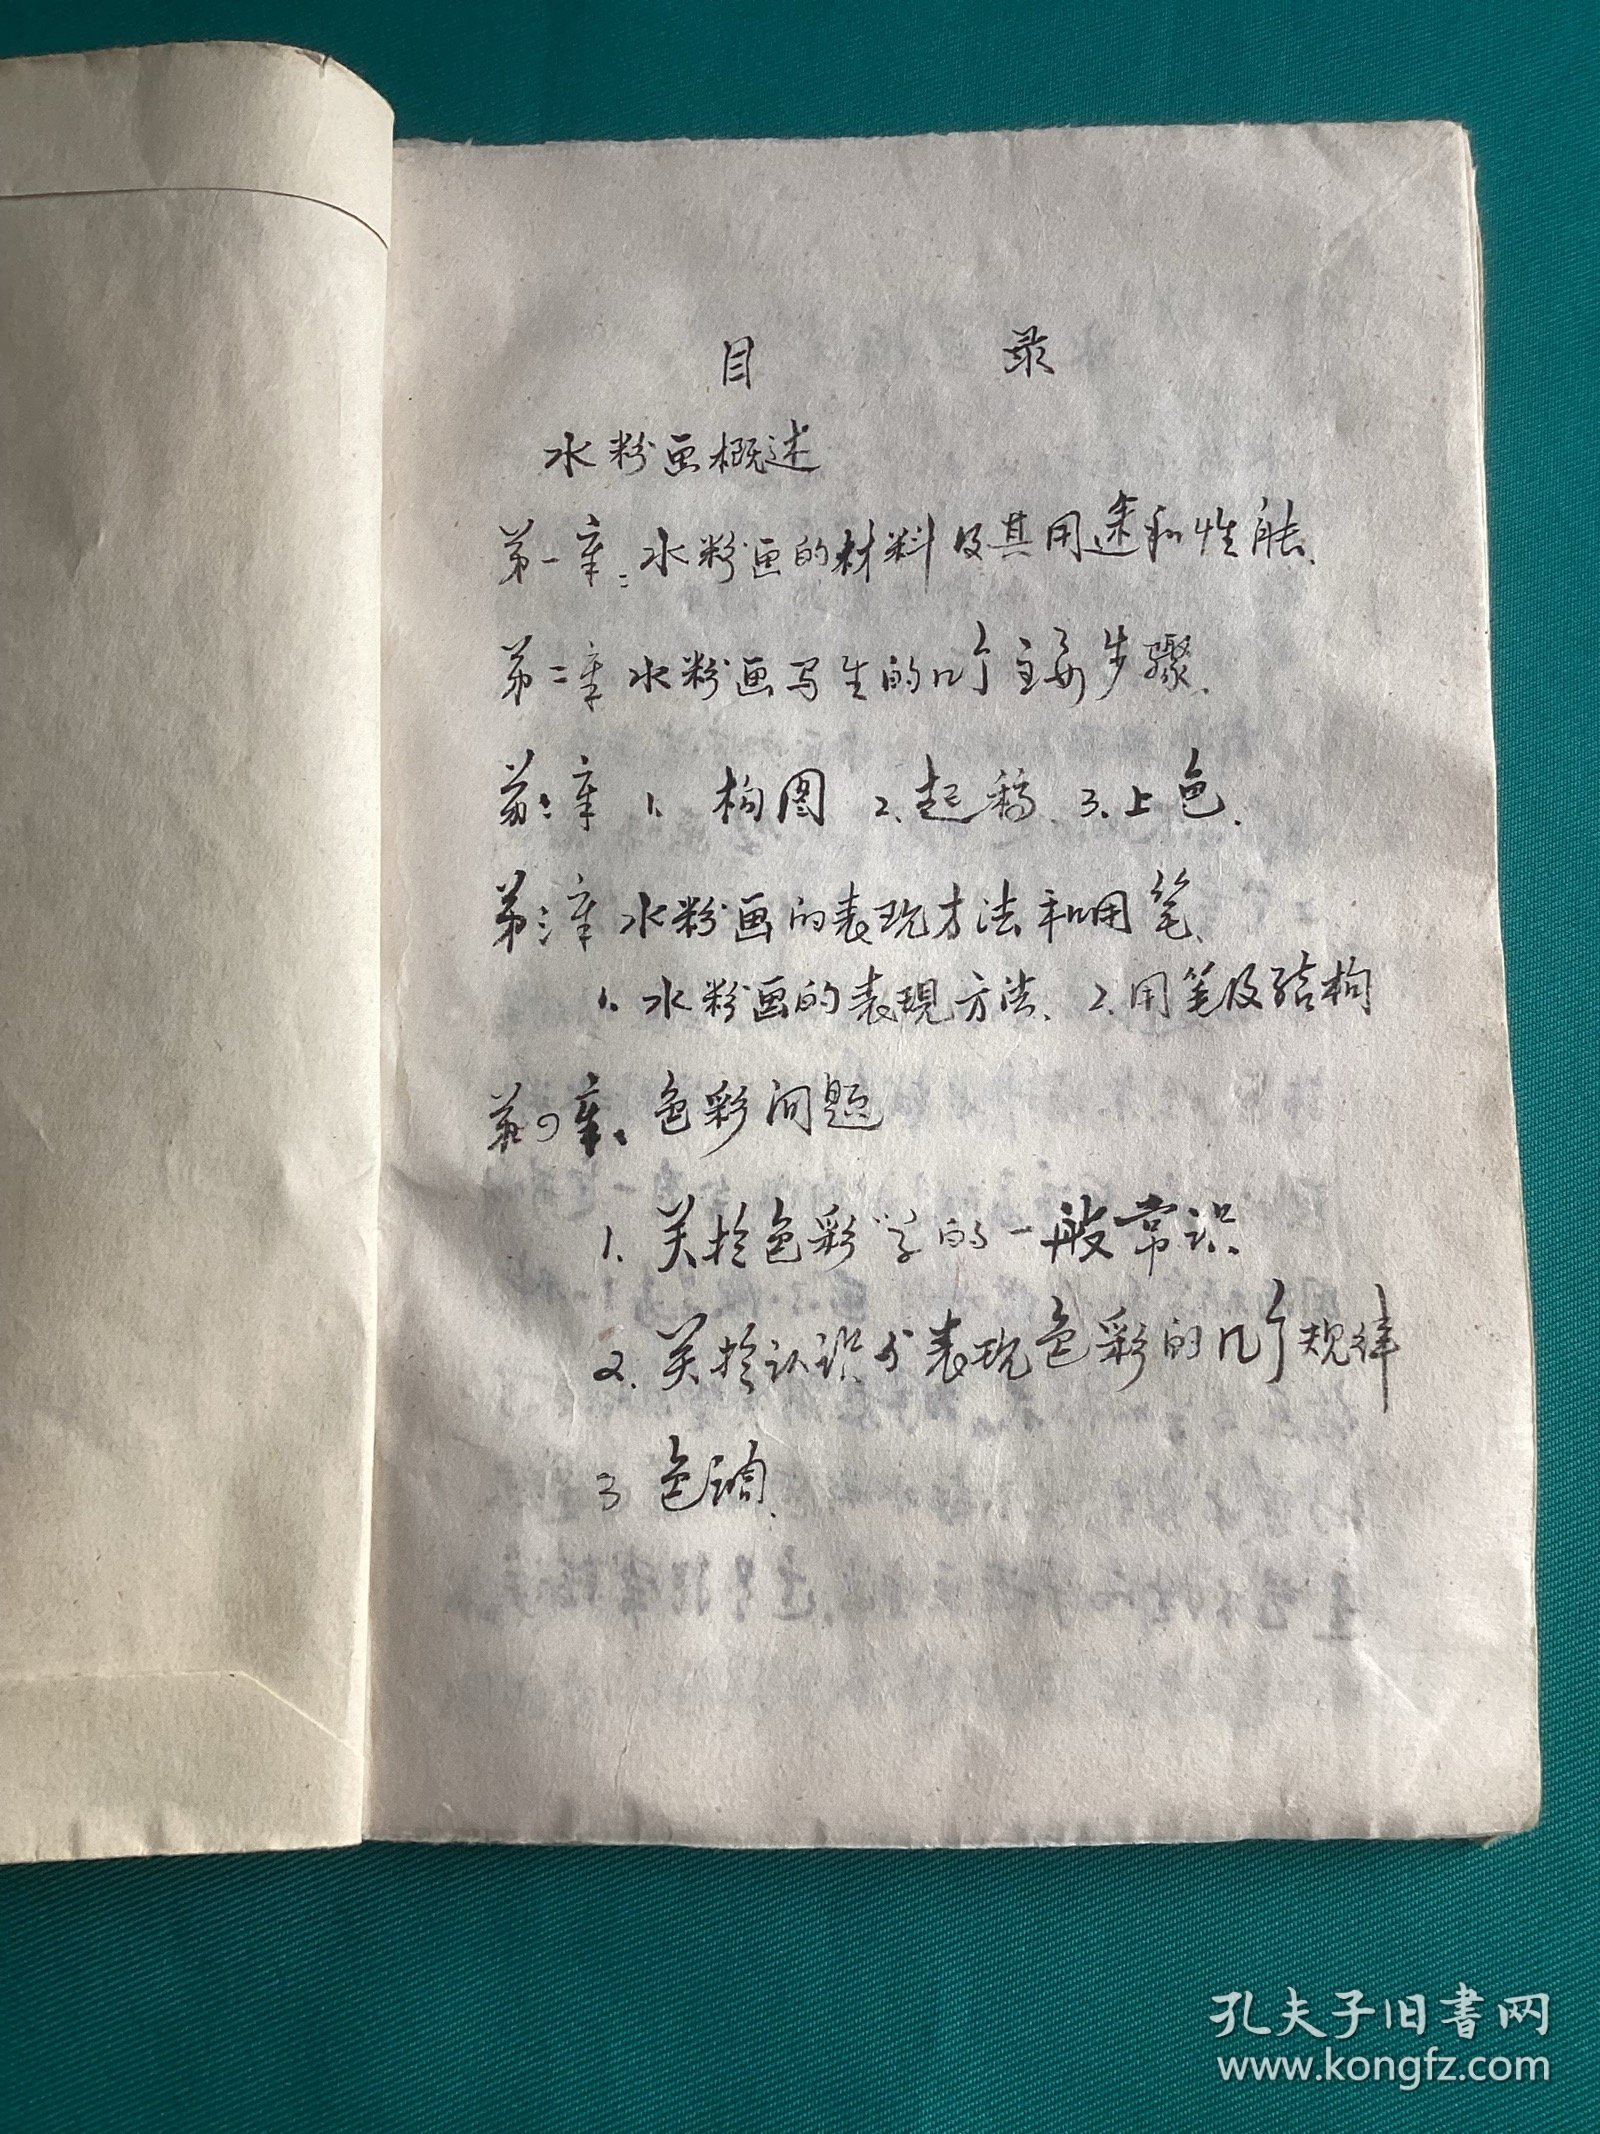 目 录
水粉画概述
第一章：水粉画的材料及其用途和性能、
第二章 水粉画写生的几个主要步骤、
第二章 1、构图 2、起稿、3、上色、
第三章 水粉画的表现方法和用笔、
1、水粉画的表現方法、2、用笔及结构
第四章、色彩问题
1、关於色彩学的一般常识
2、关於认识与表现色彩的几个规律
3 色调、
孔夫子旧书网
www.kongfz.com